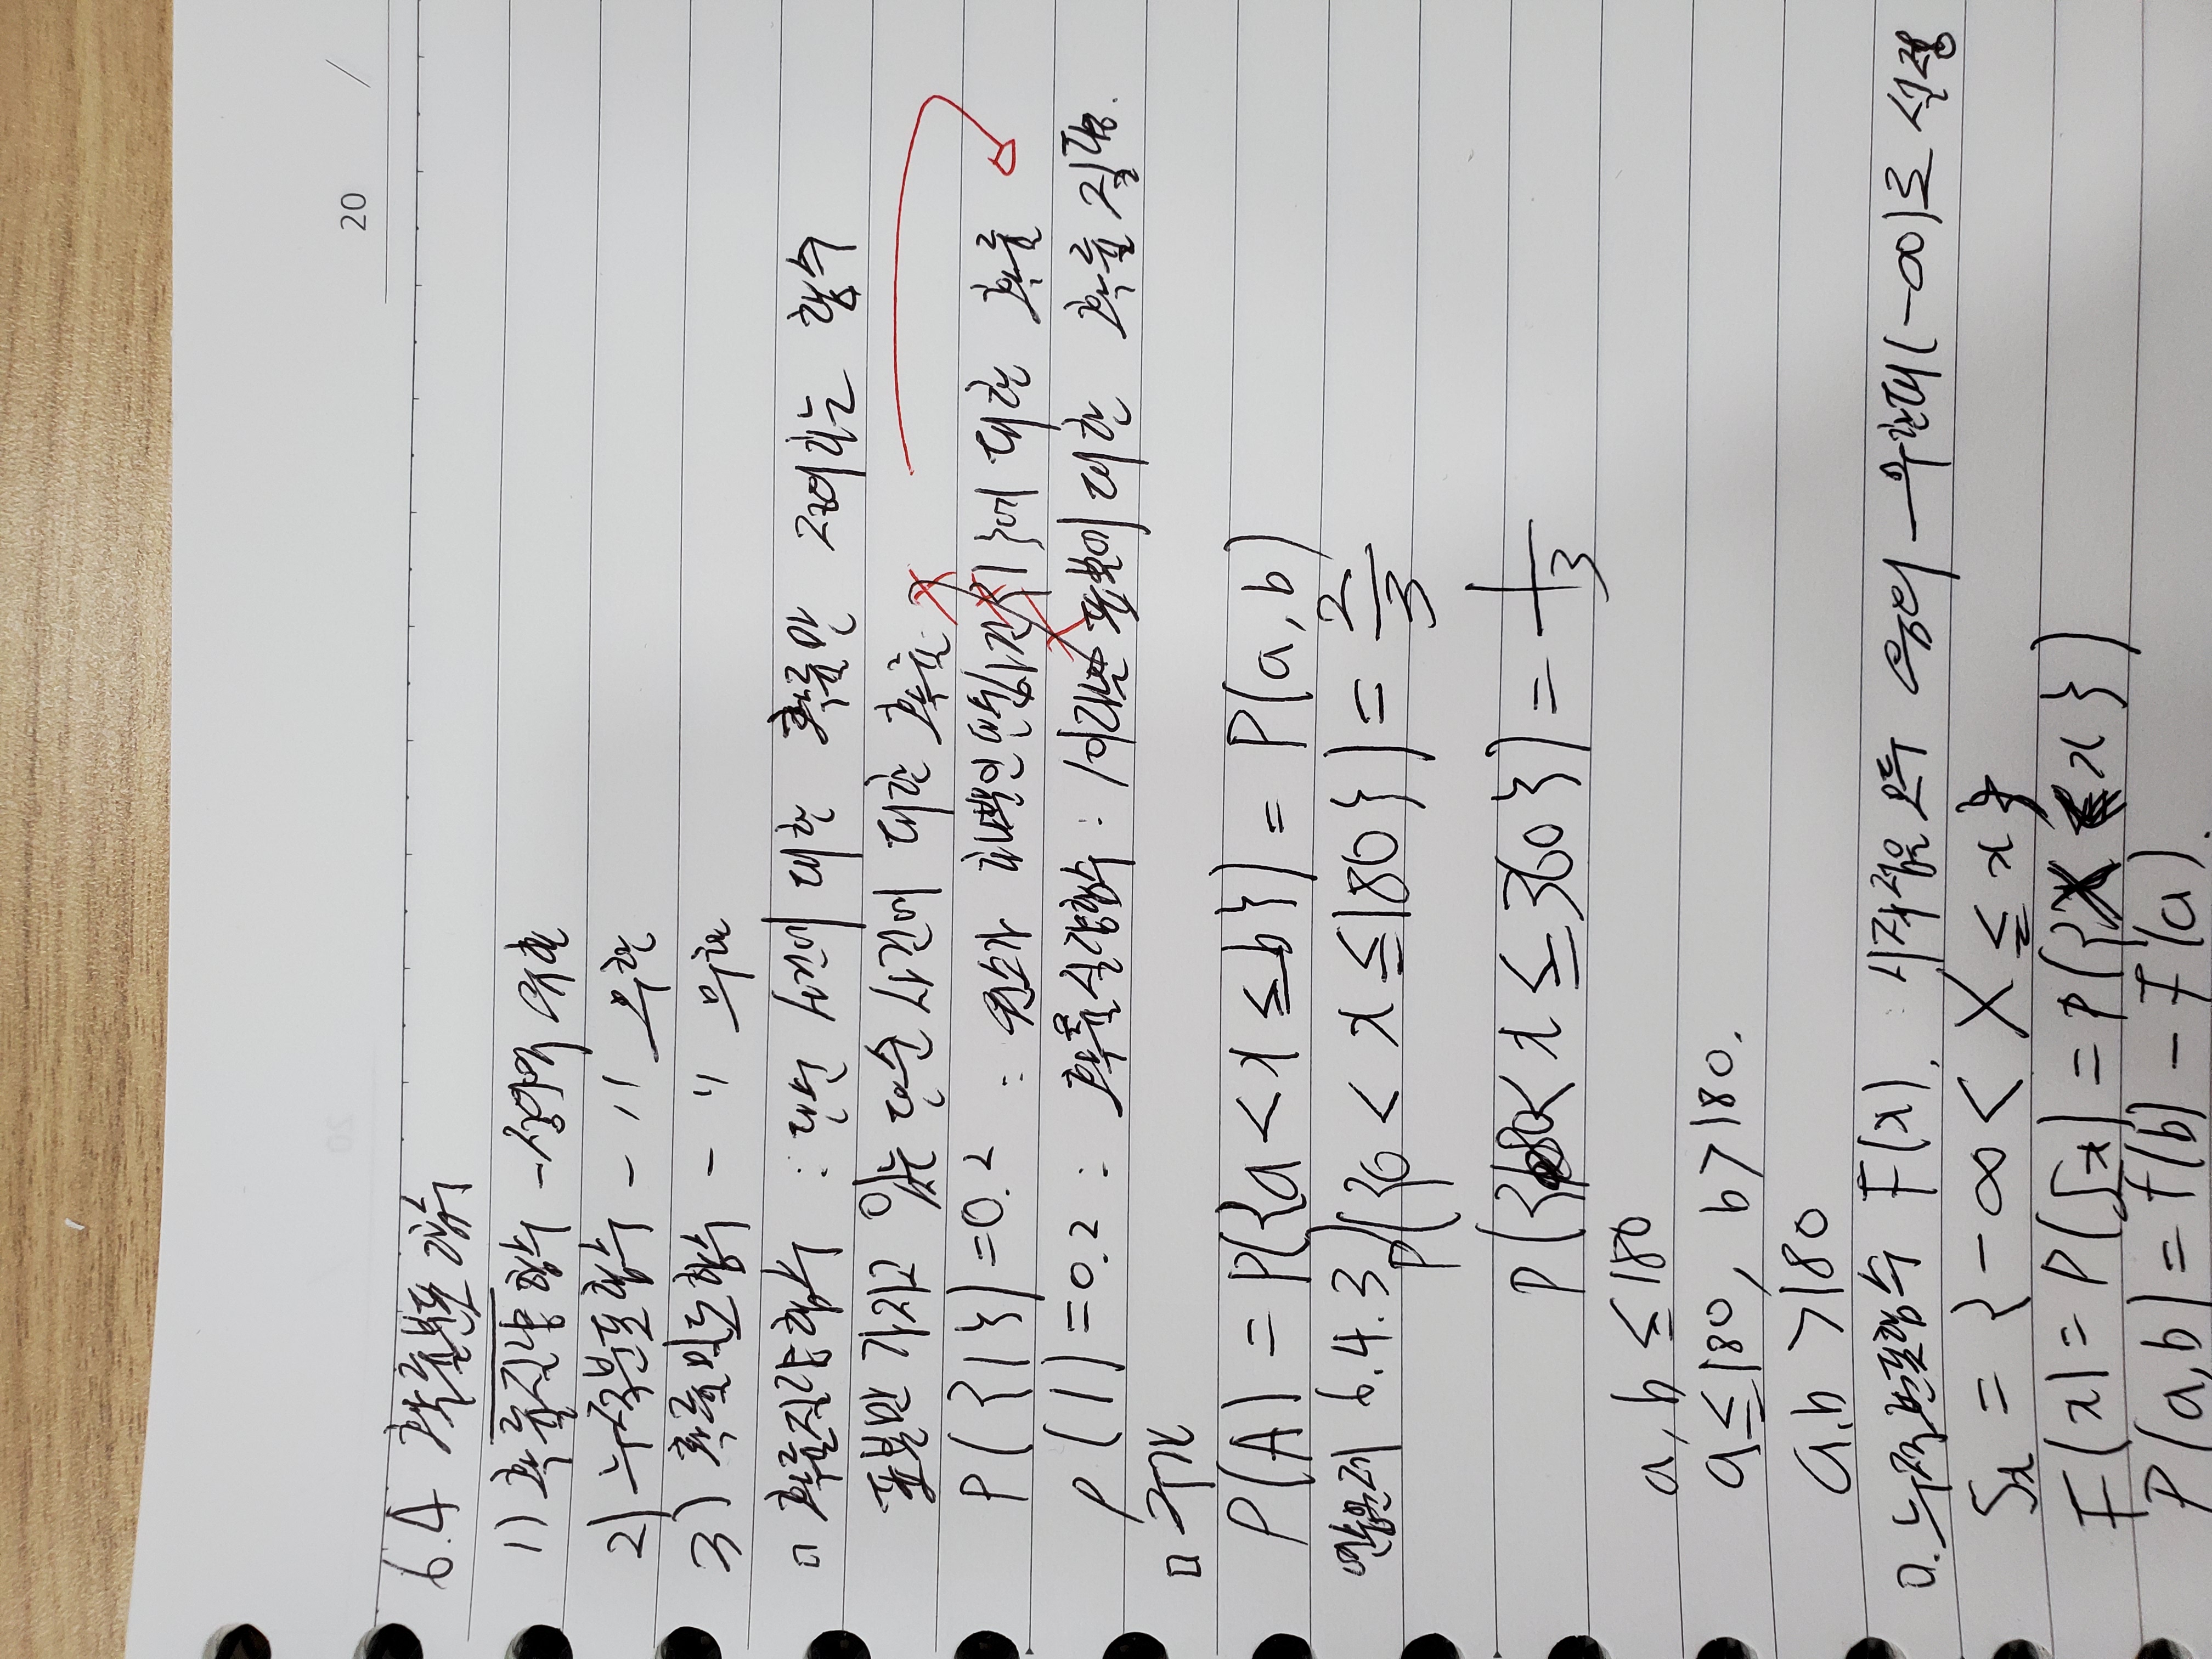 20 /
6.4 확률분포 함수
1) 확률질량함수 - 정의역 유한
2) 누적분포함수 - 〃 무한
3) 확률밀도함수 - 〃 무한
□ 확률질량함수 : 단순 사건에 대한 확률만 정의하는 함수
표본만 가지고 있는 단순 사건에 대한 확률
P({1}) = 0.2 : 원소가 하나뿐인 단순사건 {1}에 대한 확률
p(1) = 0.2 : 확률질량함수 : 1이라는 표본에 대한 확률 질량.
□ 구간
P(A) = P({a < x ≤ b}) = P(a, b)
연습문제 6.4.3) P({0 < x ≤ 180}) = 2/3
P({180 < x ≤ 360}) = 1/3
a, b ≤ 180
a ≤ 180, b > 180.
a, b > 180
□. 누적분포함수 F(x). : 시작점을 모두 음의 무한대(-∞)로 설정
Sx = {-∞ < X ≤ x}
F(x) = P(Sx) = P({X < x})
P(a, b) = F(b) - F(a).